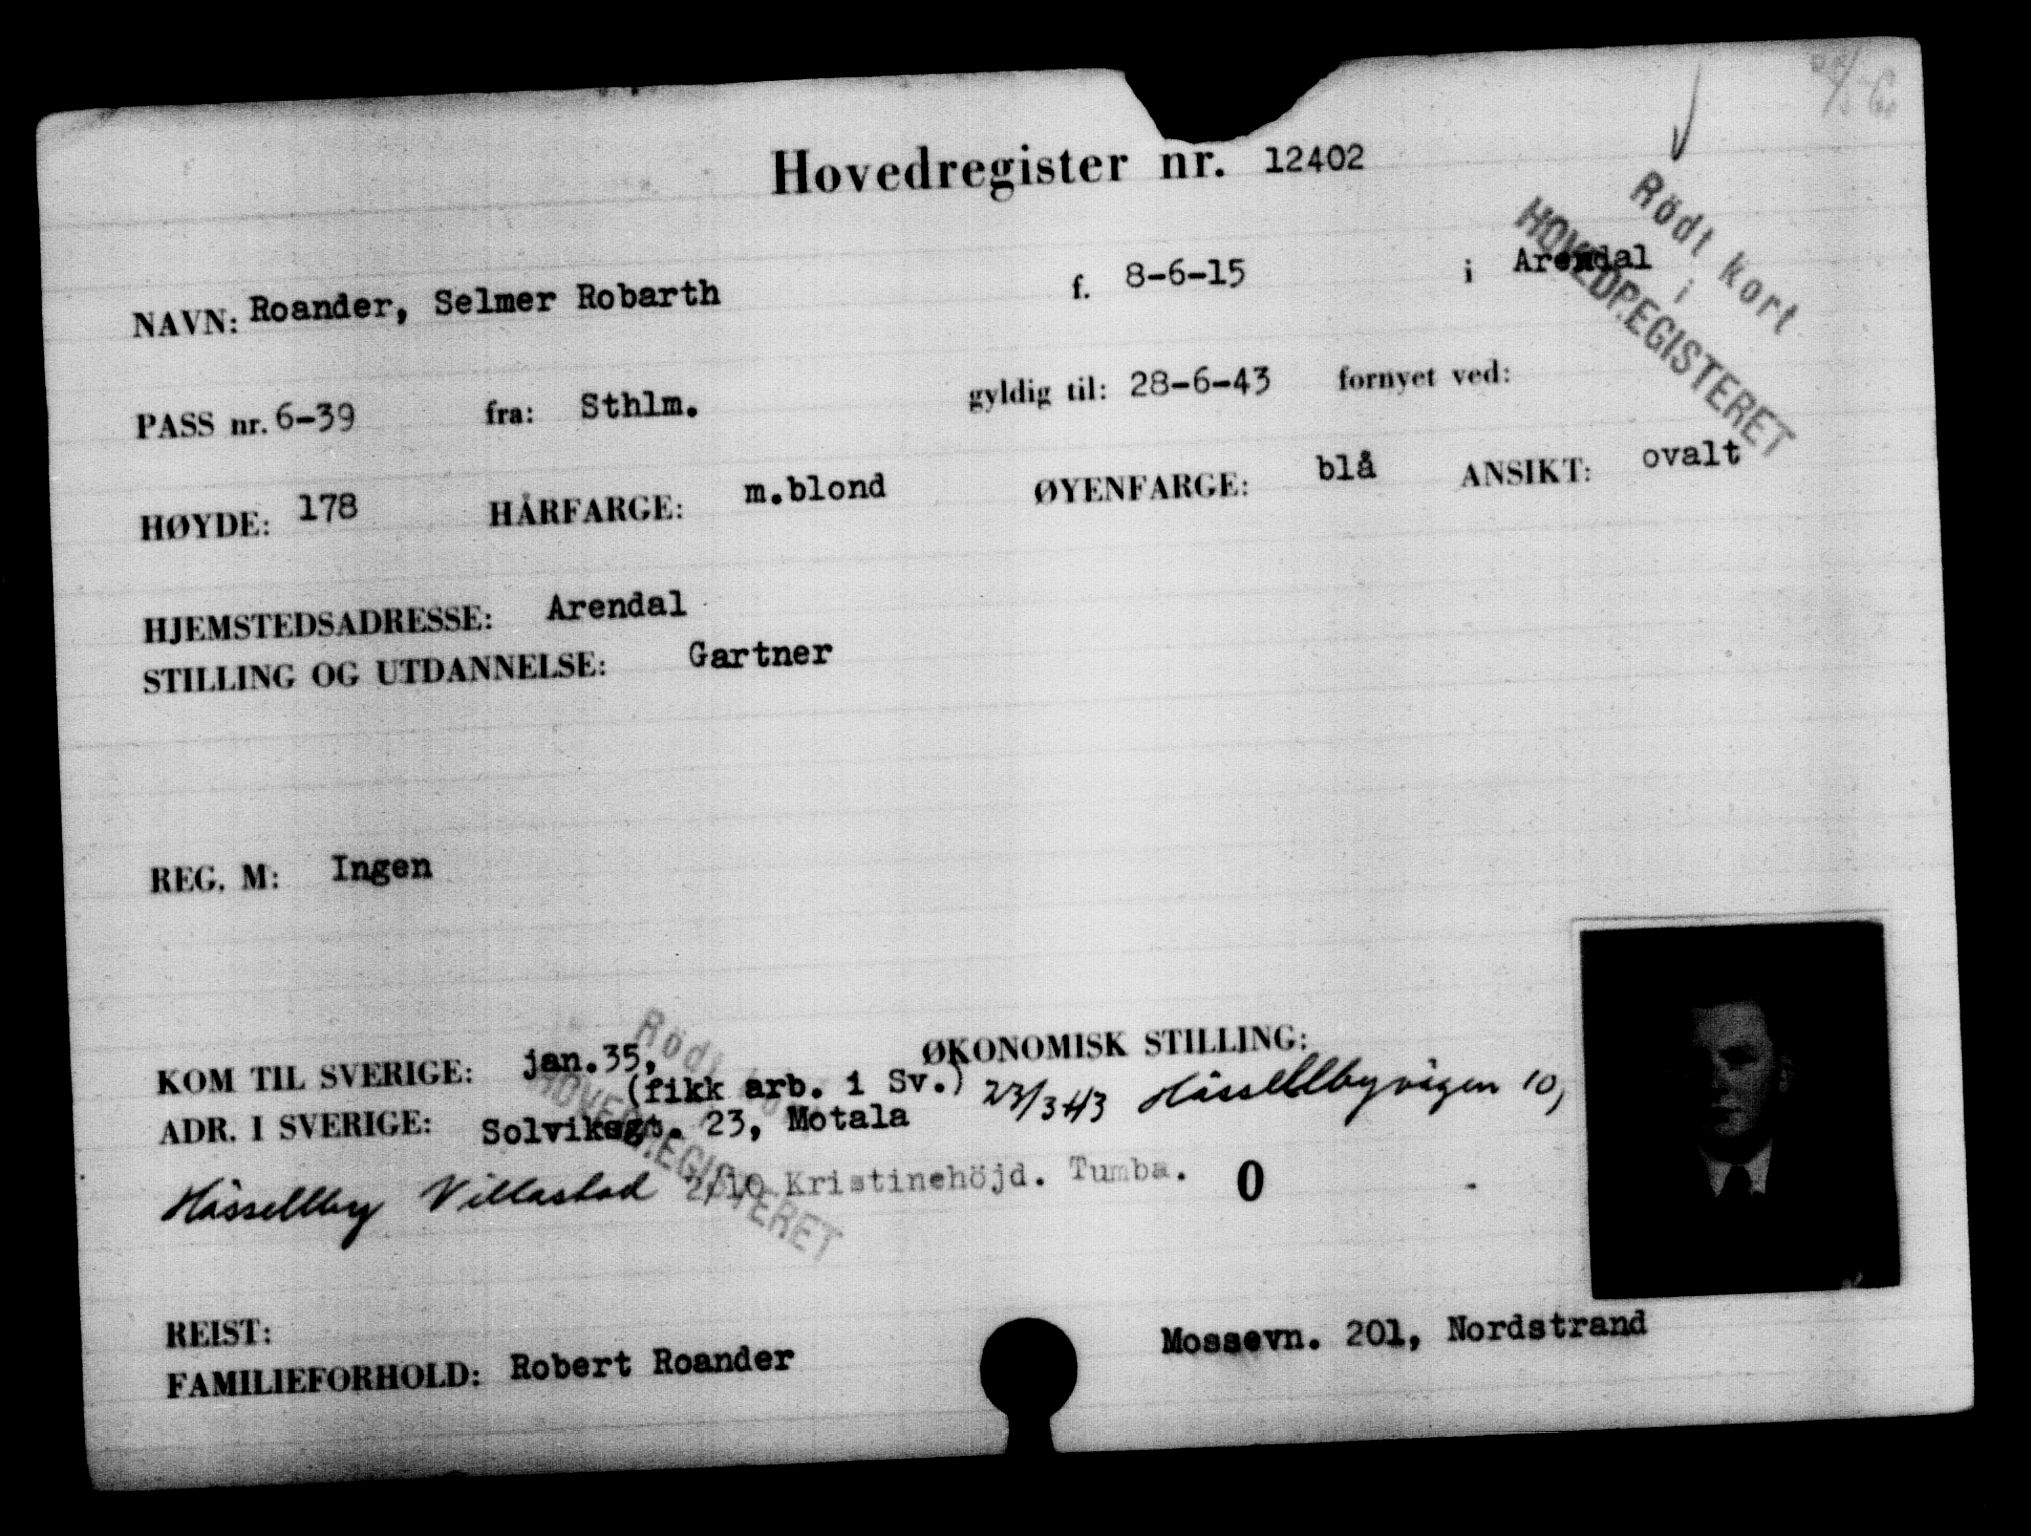 Hovedregister nr. 12402
Rödt kort
i
HOVEDREGISTERET
NAVN: Roander, Selmer Robarth f. 8-6-15 i Arendal
PASS nr. 6-39 fra: Sthlm. gyldig til: 28-6-43 fornyet ved:
HØYDE: 178 HÅRFARGE: m.blond ØYENFARGE: blå ANSIKT: ovalt
HJEMSTEDSADRESSE: Arendal
STILLING OG UTDANNELSE: Gartner
REG. M: Ingen
KOM TIL SVERIGE: jan.35, ØKONOMISK STILLING:
(fikk arb. i Sv.) 23/3 43 Hässelbyvägen 10,
ADR. I SVERIGE: Solviksgt. 23, Motala
Hässelby Villastad 2/10 Kristinehöjd. Tumba. 0
Rödt kort
HOVEDREGISTERET
REIST:
FAMILIEFORHOLD: Robert Roander Mossevn. 201, Nordstrand